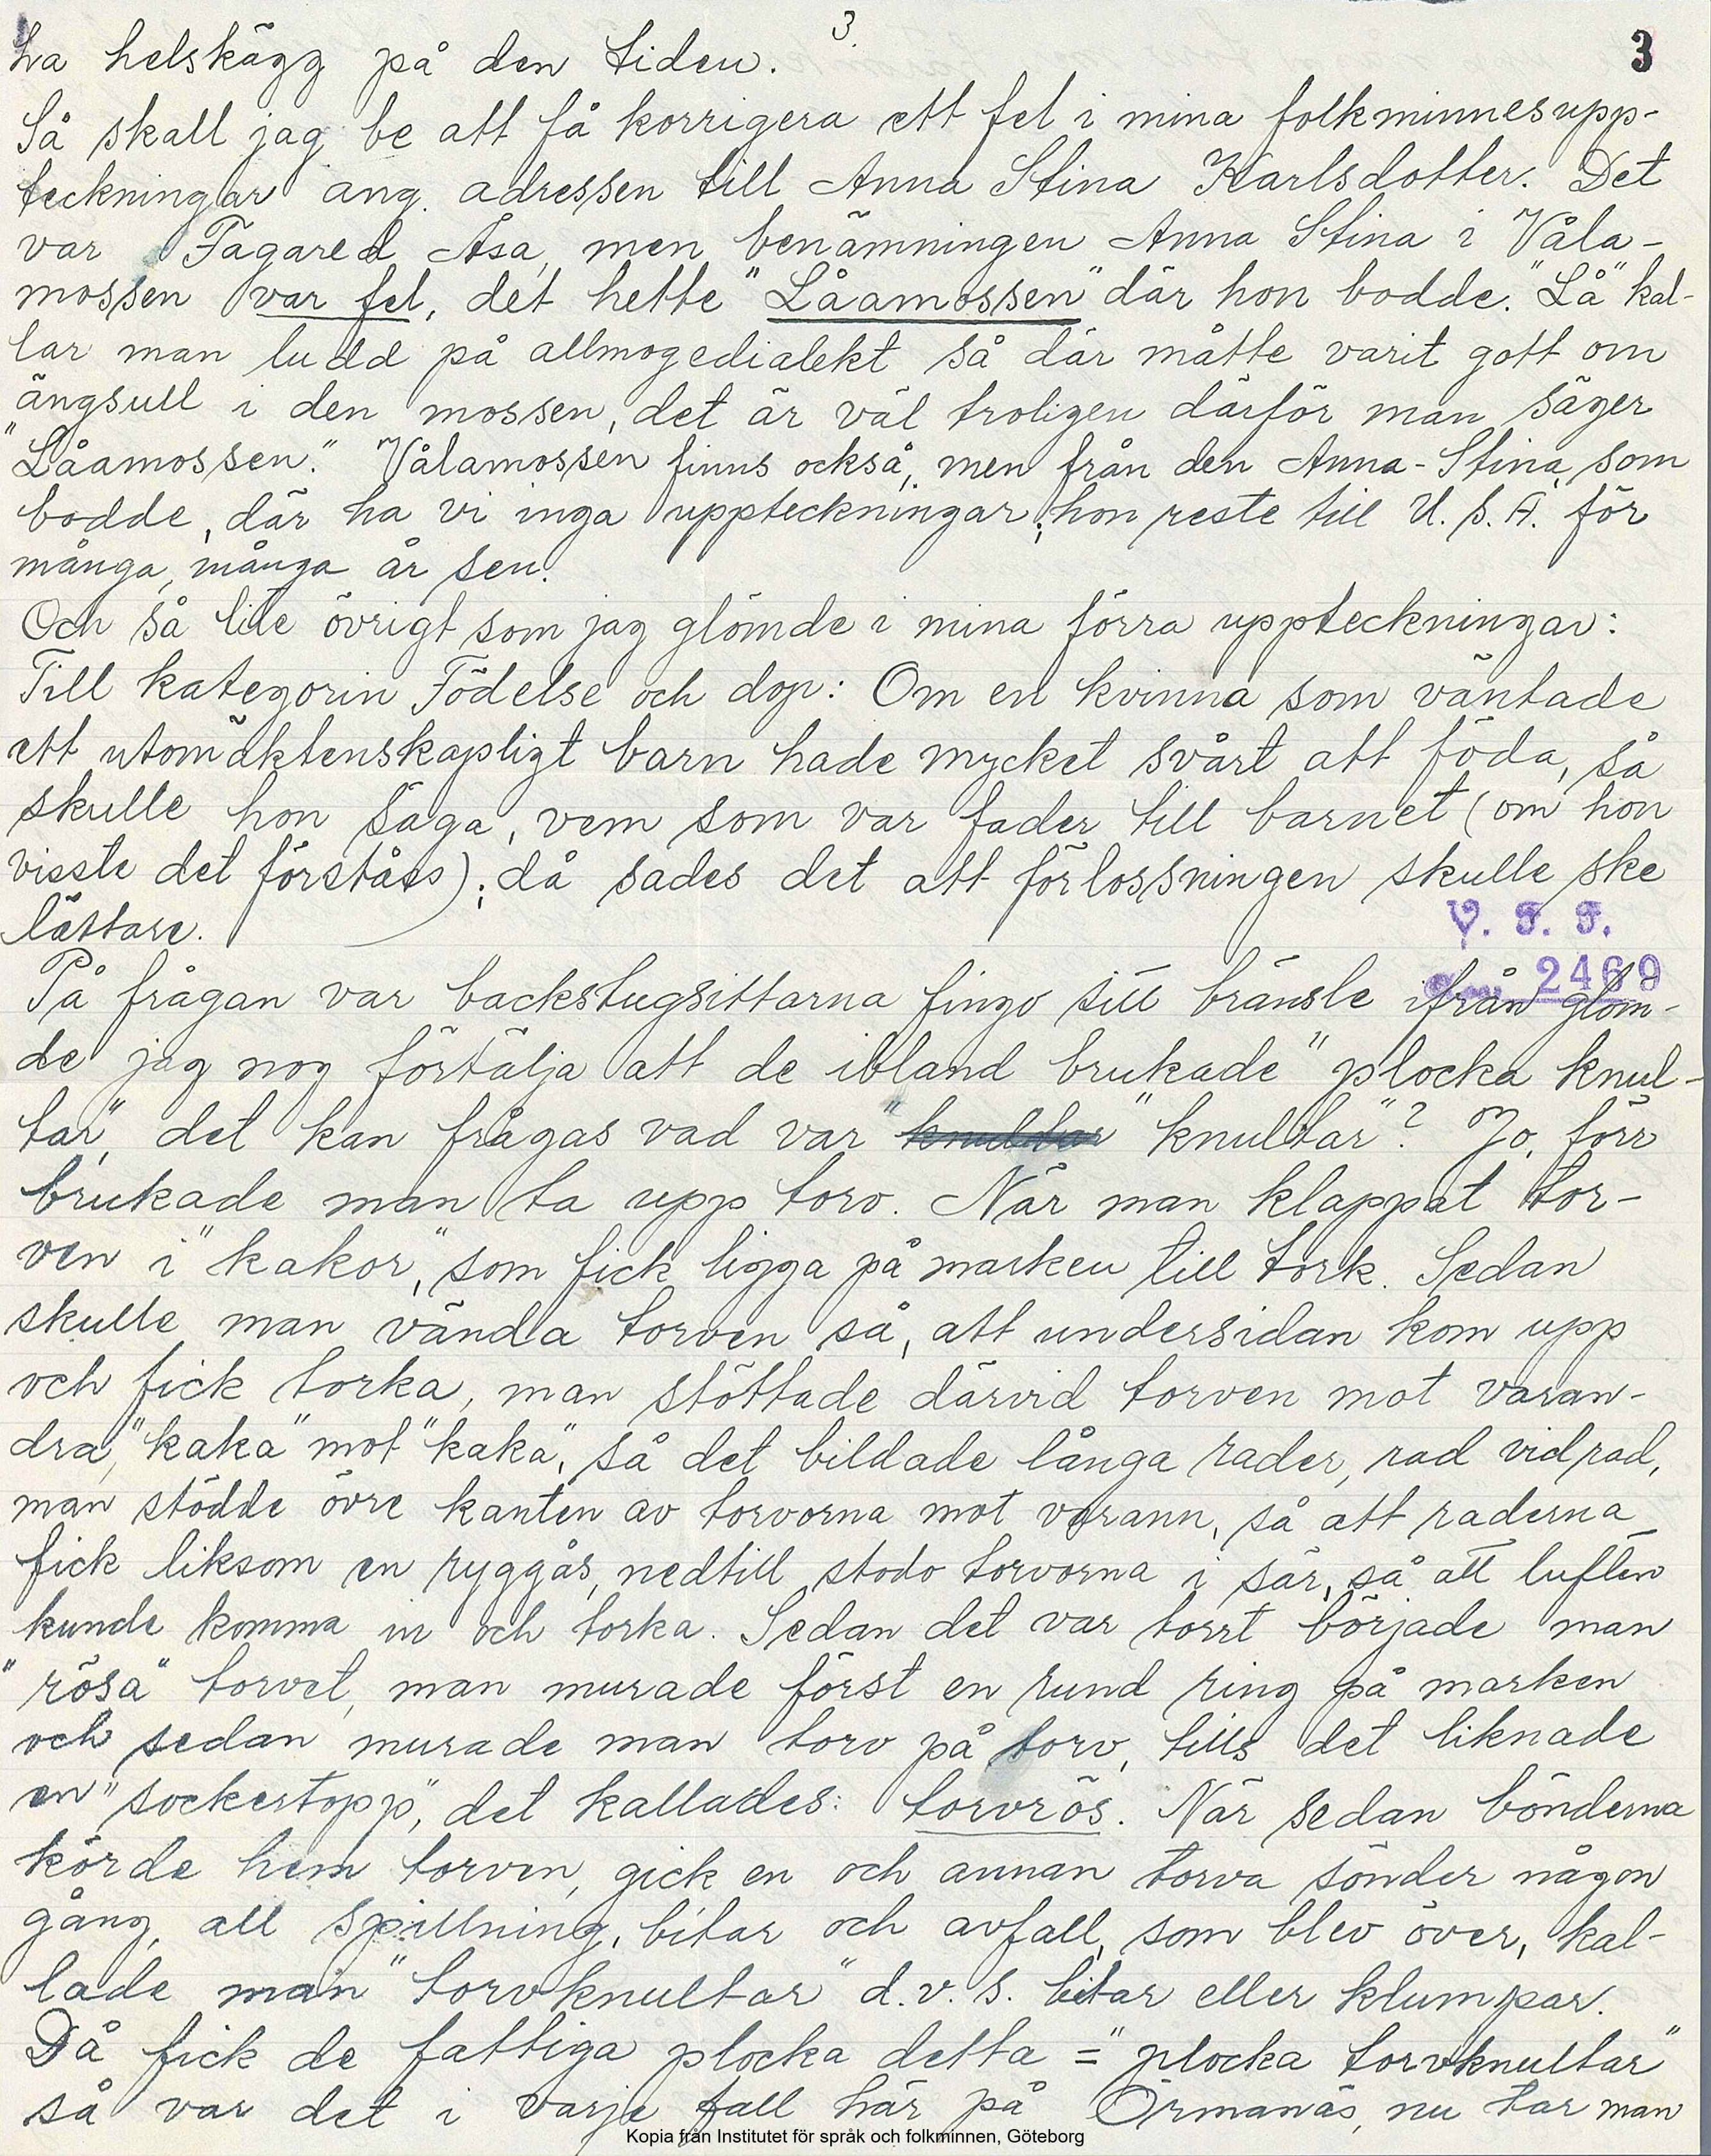 3.
3
ha helskägg på den tiden.
Så skall jag be att få korrigera ett fel i mina folkminnesupp-
teckningar ang. adressen till Anna Stina Karlsdotter. Det
var Fagared Åsa, men benämningen Anna Stina i Våla-
mossen var fel, det hette "Låamossen" där hon bodde. "Lå" kal-
lar man ludd på allmogedialekt så där måtte varit gott om
ängsull i den mossen, det är väl troligen därför man säger
"Låamossen." Vålamossen finns också, men från den Anna-Stina, som
bodde, där ha vi inga uppteckningar; hon reste till U.S.A. för
många, många år sen.
Och så lite övrigt som jag glömde i mina förra uppteckningar:
Till kategorin Födelse och dop: Om en kvinna som väntade
ett utomäktenskapligt barn hade mycket svårt att föda, så
skulle hon säga, vem som var fader till barnet (om hon
visste det förståss); då sades det att förlossningen skulle ske
lättare.
V. F. F.
2469
På frågan var backstugsittarna fingo sitt bränsle ifrån glöm-
de jag nog förtälja att de ibland brukade "plocka knul-
tar", det kan frågas vad var "knultar" "knultar"? Jo, förr
brukade man ta upp torv. När man klappat tor-
ven i "kakor", som fick ligga på marken till tork. Sedan
skulle man vända torven så, att undersidan kom upp
och fick torka, man stöttade därvid torven mot varan-
dra, "kaka" mot "kaka", så det bildade långa rader, rad vid rad,
man stödde övre kanten av torvorna mot varann, så att raderna
fick liksom en ryggås, nedtill stodo torvorna i sär, så att luften
kunde komma in och torka. Sedan det var torrt började man
"rösa" torvet, man murade först en rund ring på marken
och sedan murade man torv på torv, tills det liknade
en "sockertopp", det kallades: torvrös. När sedan bönderna
körde hem torven, gick en och annan torva sönder någon
gång, all spillning, bitar och avfall, som blev över, kal-
lade man "torvknultar" d.v.s. bitar eller klumpar.
Då fick de fattiga plocka detta = "plocka torvknultar"
så var det i varje fall här på Örmanäs, nu tar man
Kopia från Institutet för språk och folkminnen, Göteborg